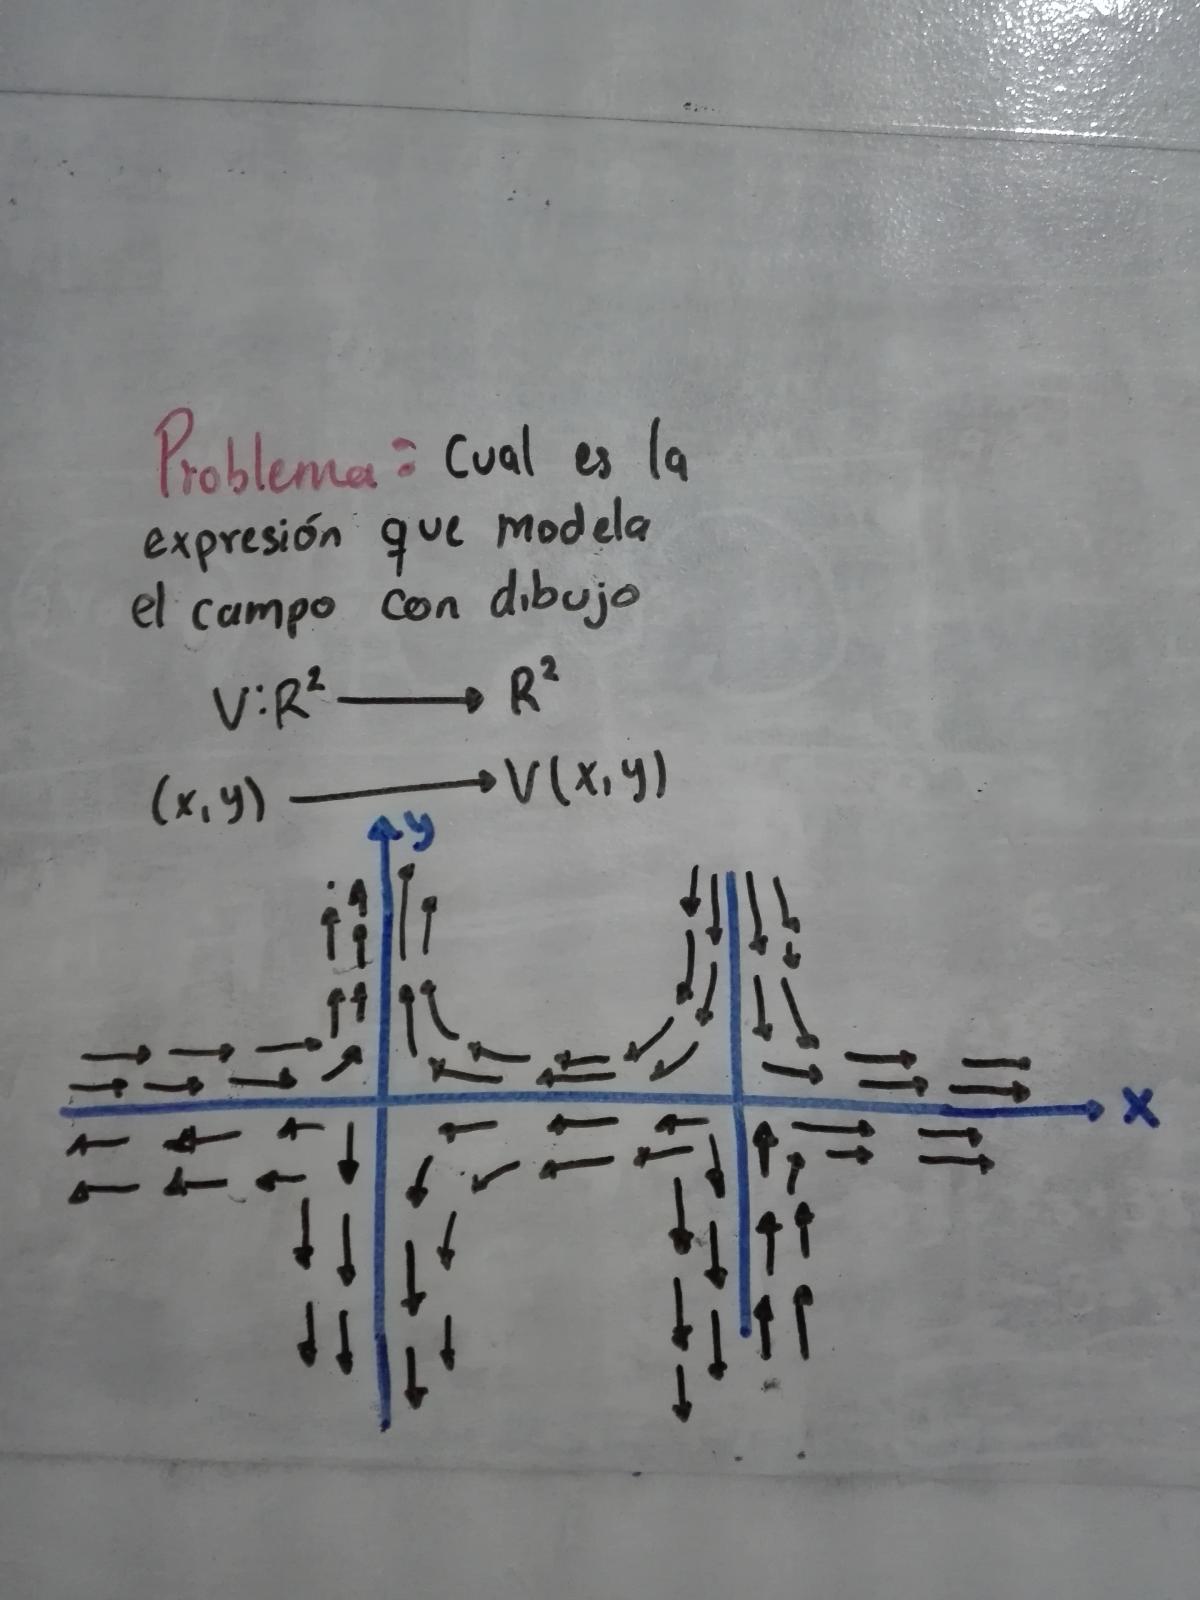 Problema: Cual es la
expresión que modela
el campo con dibujo
V:R² → R²
(x,y) → V(x,y)
y
x